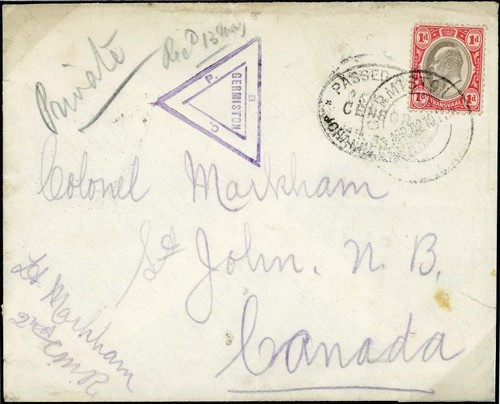 Private
Rec'd 13 May
P. B. C.
GERMISTON
PASSED
CENSOR
1d 1d
TRANSVAAL
1d 1d
Colonel Markham
St John. N. B.
Canada
Lt Markham
2nd C.M.R.